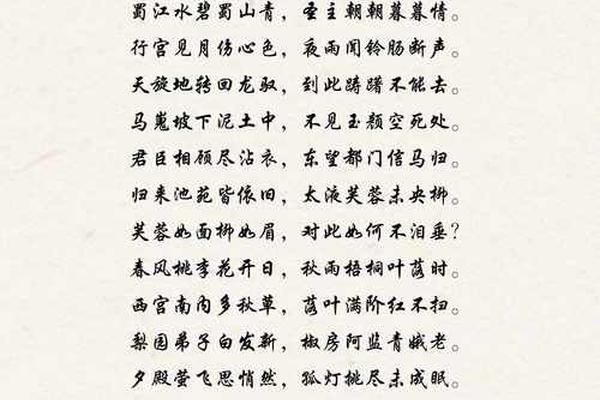 蜀江水碧蜀山青，圣主朝朝暮暮情。
行宫见月伤心色，夜雨闻铃肠断声。
天旋地转回龙驭，到此踌躇不能去。
马嵬坡下泥土中，不见玉颜空死处。
君臣相顾尽沾衣，东望都门信马归。
归来池苑皆依旧，太液芙蓉未央柳。
芙蓉如面柳如眉，对此如何不泪垂？
春风桃李花开日，秋雨梧桐叶落时。
西宫南内多秋草，落叶满阶红不扫。
梨园弟子白发新，椒房阿监青娥老。
夕殿萤飞思悄然，孤灯挑尽未成眠。